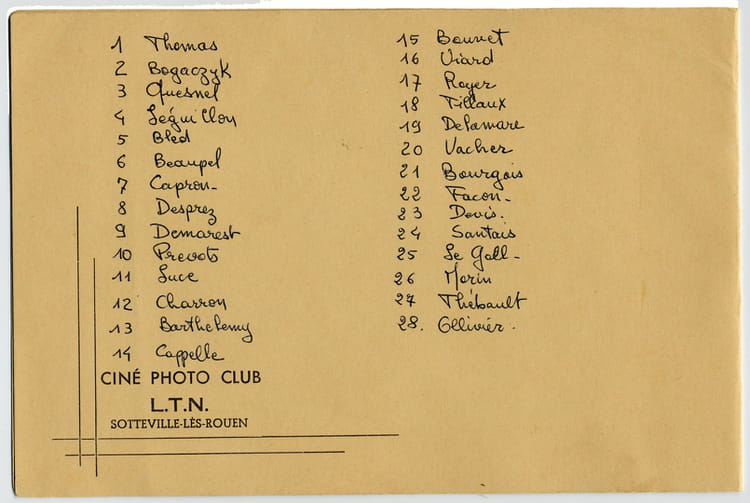 1 Thomas
2 Bogaczyk
3 Quesnel
4 Séguillon
5 Bled
6 Beaupel
7 Capron-
8 Desprez
9 Demarest
10 Prevots
11 Luce
12 Charron
13 Barthelemy
14 Cappelle
CINÉ PHOTO CLUB
L.T.N.
SOTTEVILLE-LÈS-ROUEN
15 Bouvet
16 Viard
17 Royer
18 Tillaux
19 Delamare
20 Vacher
21 Bourgois
22 Facon-
23 Devis.
24 Santais
25 Le Gall-
26 Morin
27 Thébault
28. Ollivier.